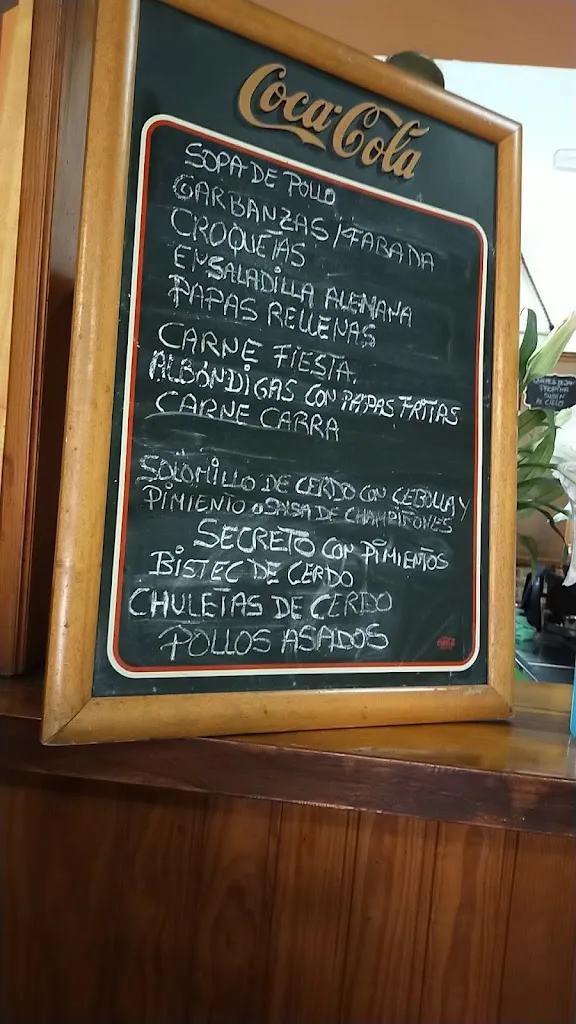 Coca-Cola
SOPA DE POLLO
GARBANZAS/FABADA
CROQUETAS
ENSALADILLA ALEMANA
PAPAS RELLENAS
CARNE FIESTA.
ALBONDIGAS CON PAPAS FRITAS
CARNE CABRA
SOLOMILLO DE CERDO CON CEBOLLA Y
PIMIENTO O SALSA DE CHAMPIÑONES
SECRETO CON PIMIENTOS
BISTEC DE CERDO
CHULETAS DE CERDO
POLLOS ASADOS